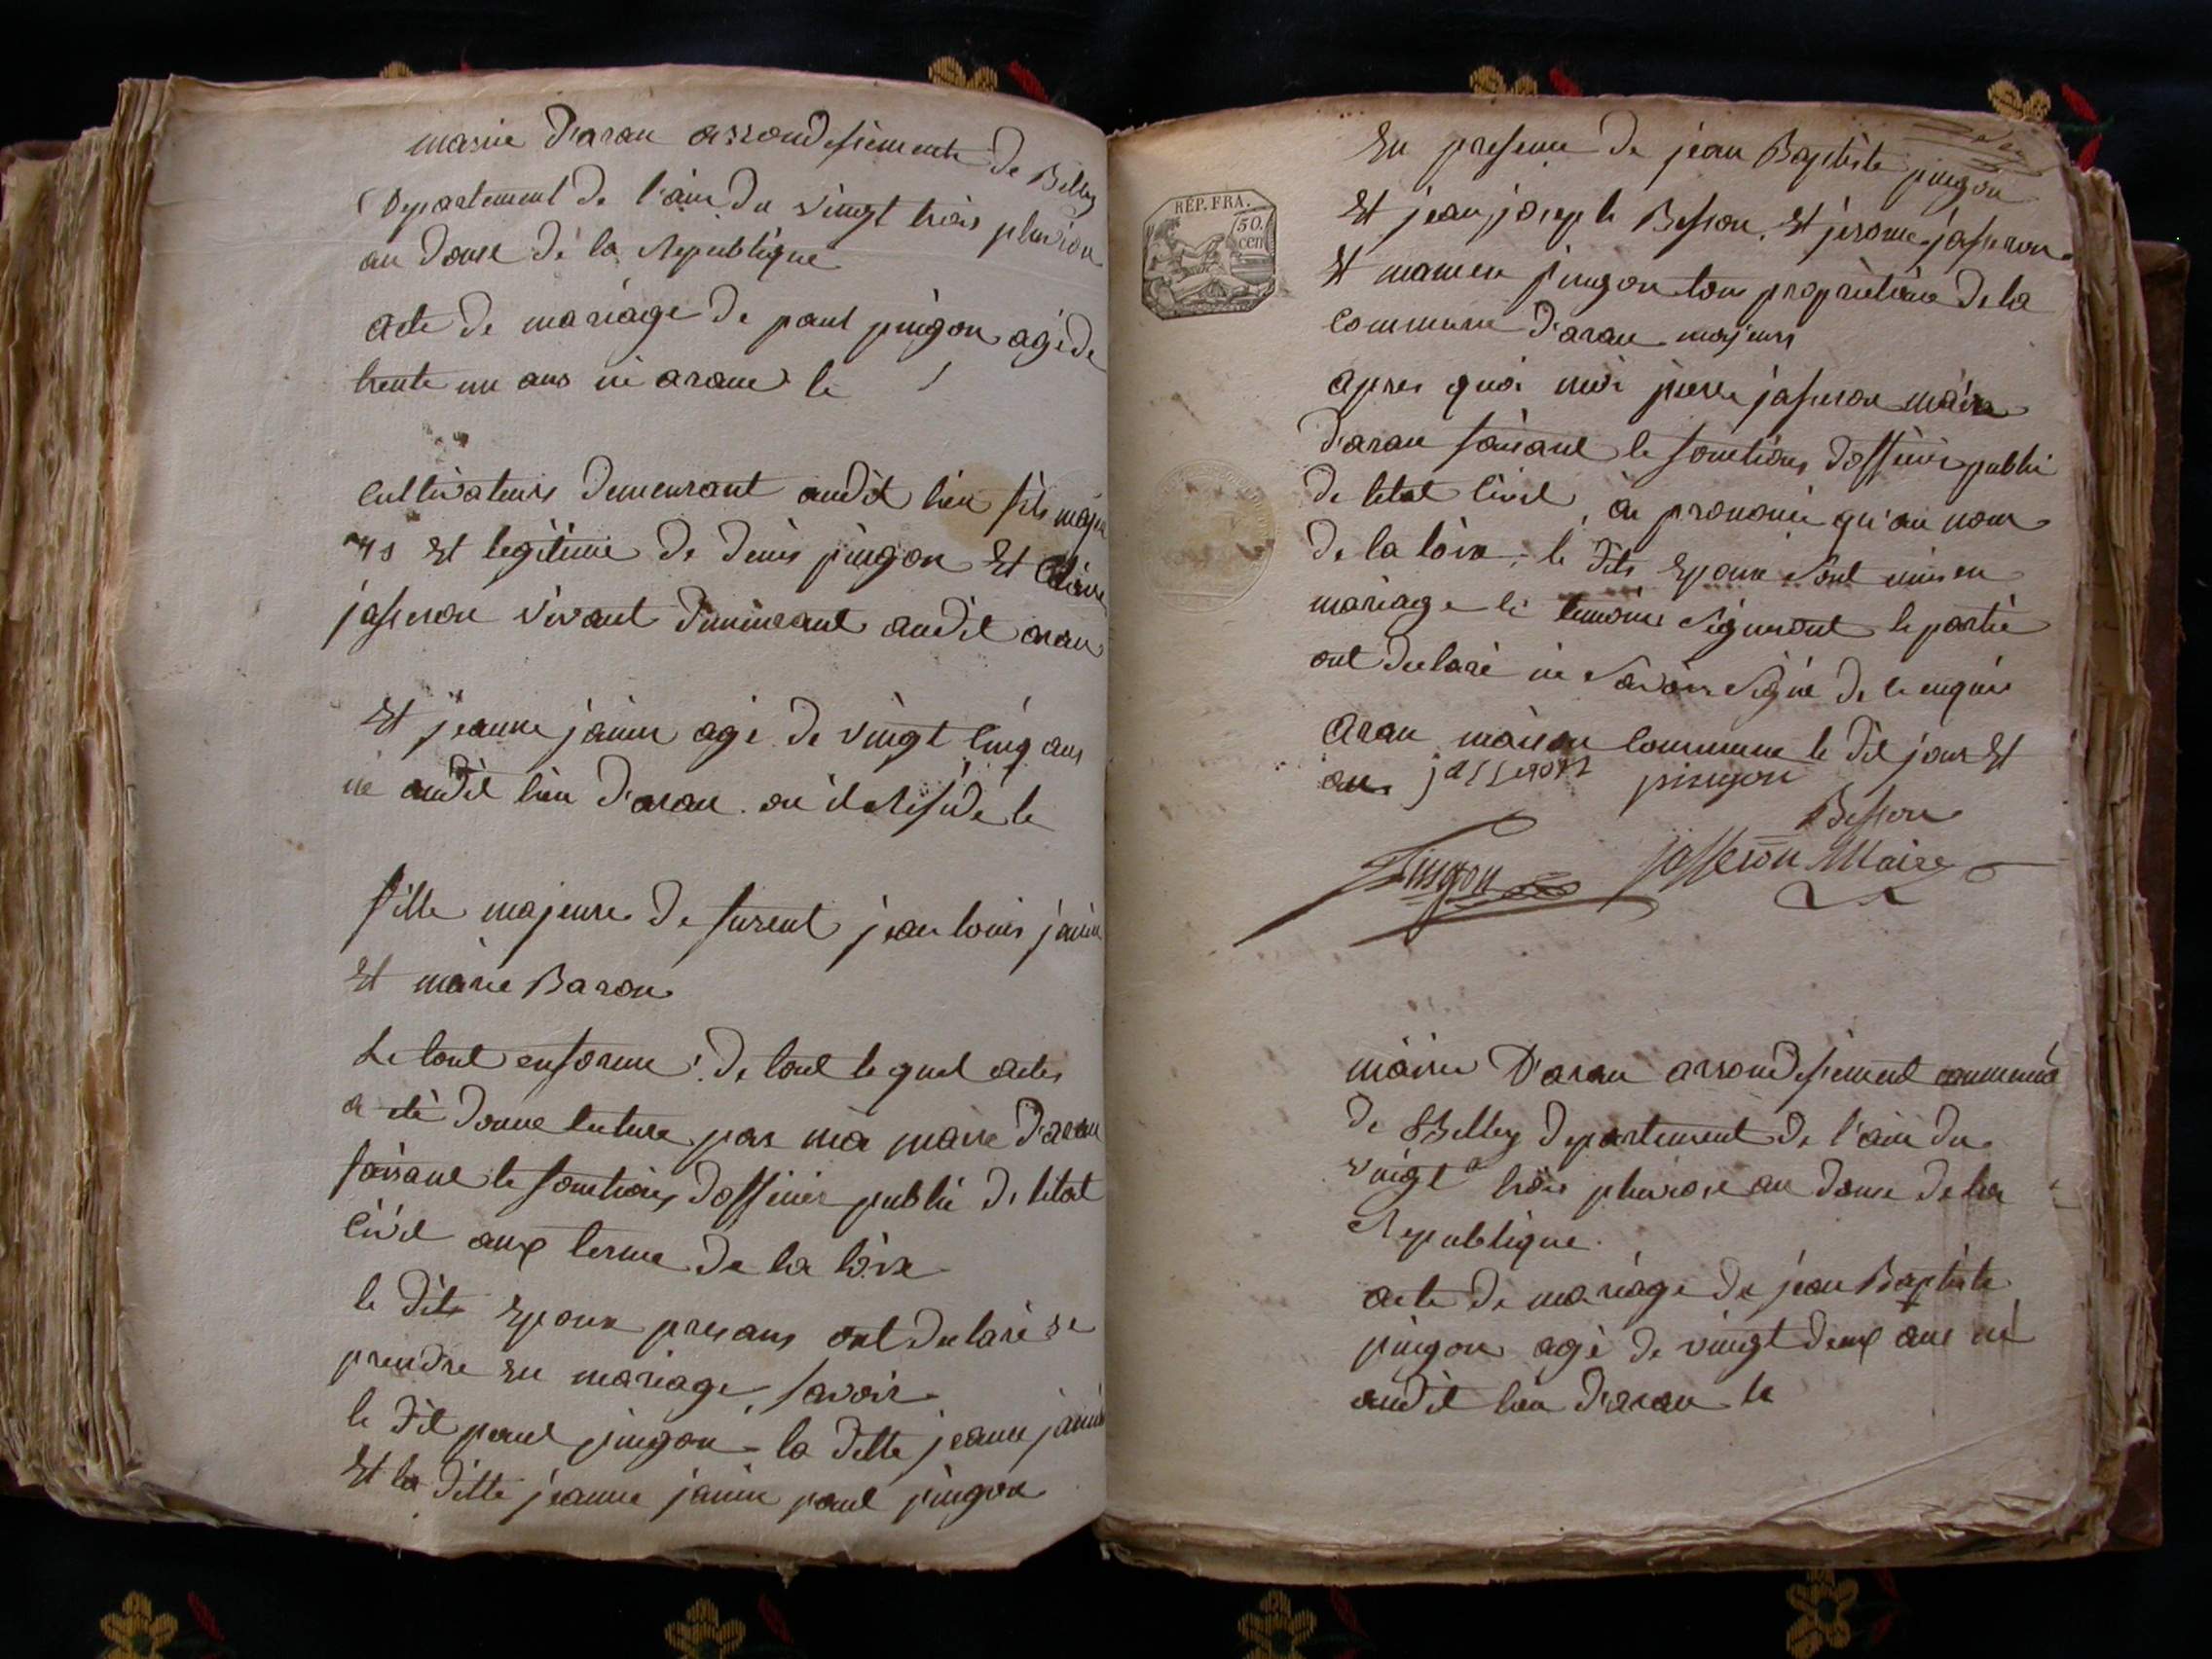 mairie d'aran arrondissement de Belley
Departement de l'ain du vingt trois pluviose
an douse de la Republique
acte de mariage de paul pingon agé de
trente un ans né a aran le
cultivateurs demeurant audit lieu fils maje
urs et legitime de denis pingon Et
jasseron vivant demeurant audit aran
Et jeanne janin agé de vingt cinq ans
né audit lieu d'aran ou il Reside le
fille majeure de furent jean louis janin
Et marie Baron
Le tout enforme : de tout lequel actes
a eté donne lecture par moi maire d'aran
faisant le fonctions dofficier public de letat
civil aux terme de la loix
le dits Epoux presans ont declaré se
prendre En mariage, savoir
le dit paul pingon la ditte jeanne janin
Et la ditte jeanne janin paul pingon
En presence de jean Baptiste pingon
Et jean joseph Besson, Et jerome jasseron
Et pingon tous proprietaire de la
commune d'aran majeurs
apres quoi moi pierre jasseron maire
d'aran faisant le fonctions dofficier public
de letat civil, ai prononcé qu'au nom
de la loix, le dits Epoux sont unis en
mariage le temoins signeront le partie
ont declaré ne savoir signé de ce enquis
aran maison commune le dit jour Et
an jasseron pingon
Besson
Pingon jasseron Maire
REP. FRA.
50.
cen
mairie D'aran arrondissement communal
de Belley departement de l'ain du
vingt trois pluviose an douse de la
Republique.
acte de mariage de jean Baptiste
pingon agé de vingt deux ans né
audit lieu d'aran le